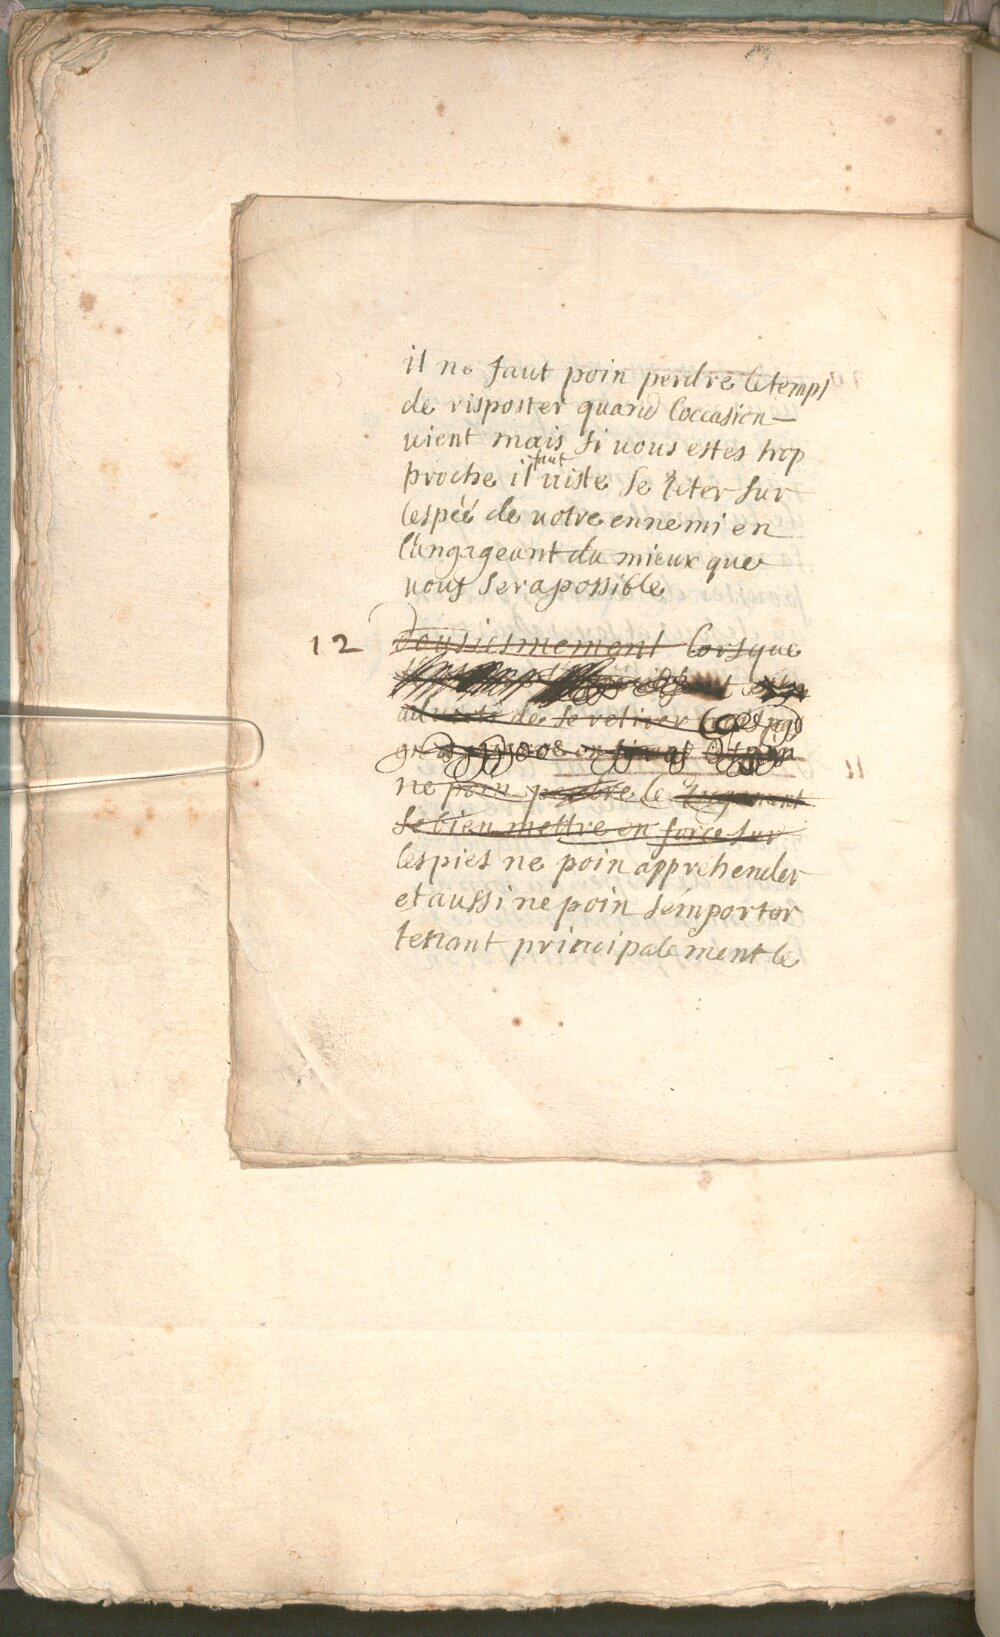 il ne faut poin perdre le temps
de risposter quand loccasion
uient mais si uous estes trop
proche il faut uiste se jeter sur
lespéé de uotre ennemi en
lengageant du mieux que
uous sera possible
12 dousiesmement lorsque
de se retirer
ne poin perdre le jugement
se bien mettre en force sur
les pies ne poin apprehender
et aussi ne poin semporter
tenant principalement le